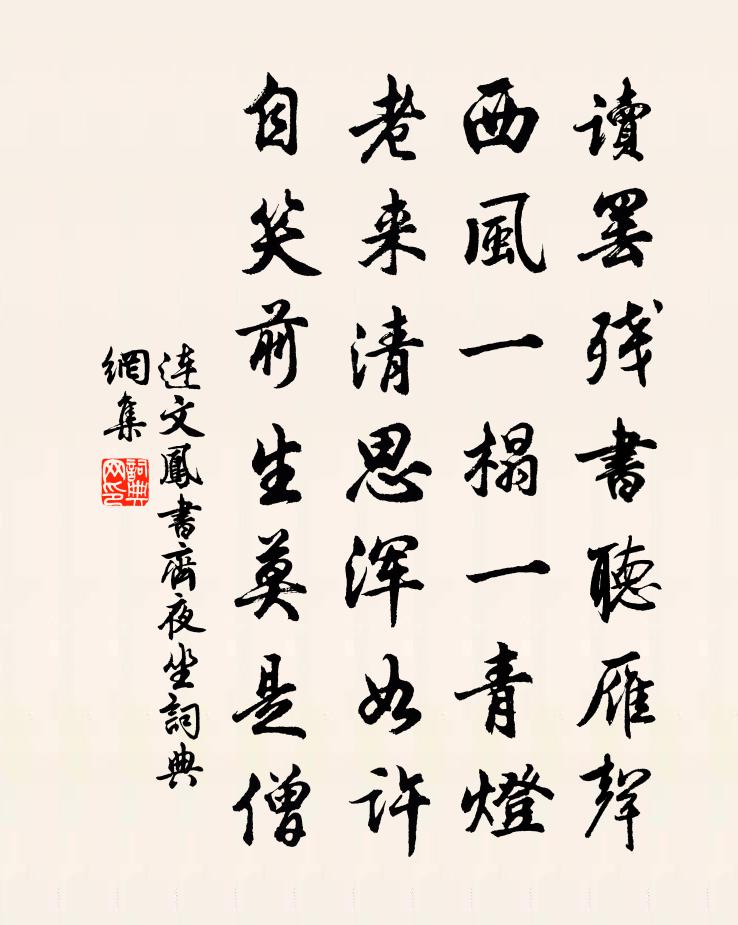 讀罷殘書聽雁聲
西風一榻一青燈
老来清思浑如许
自笑前生莫是僧
连文鳳書齋夜坐詞典
網集
詞典网印